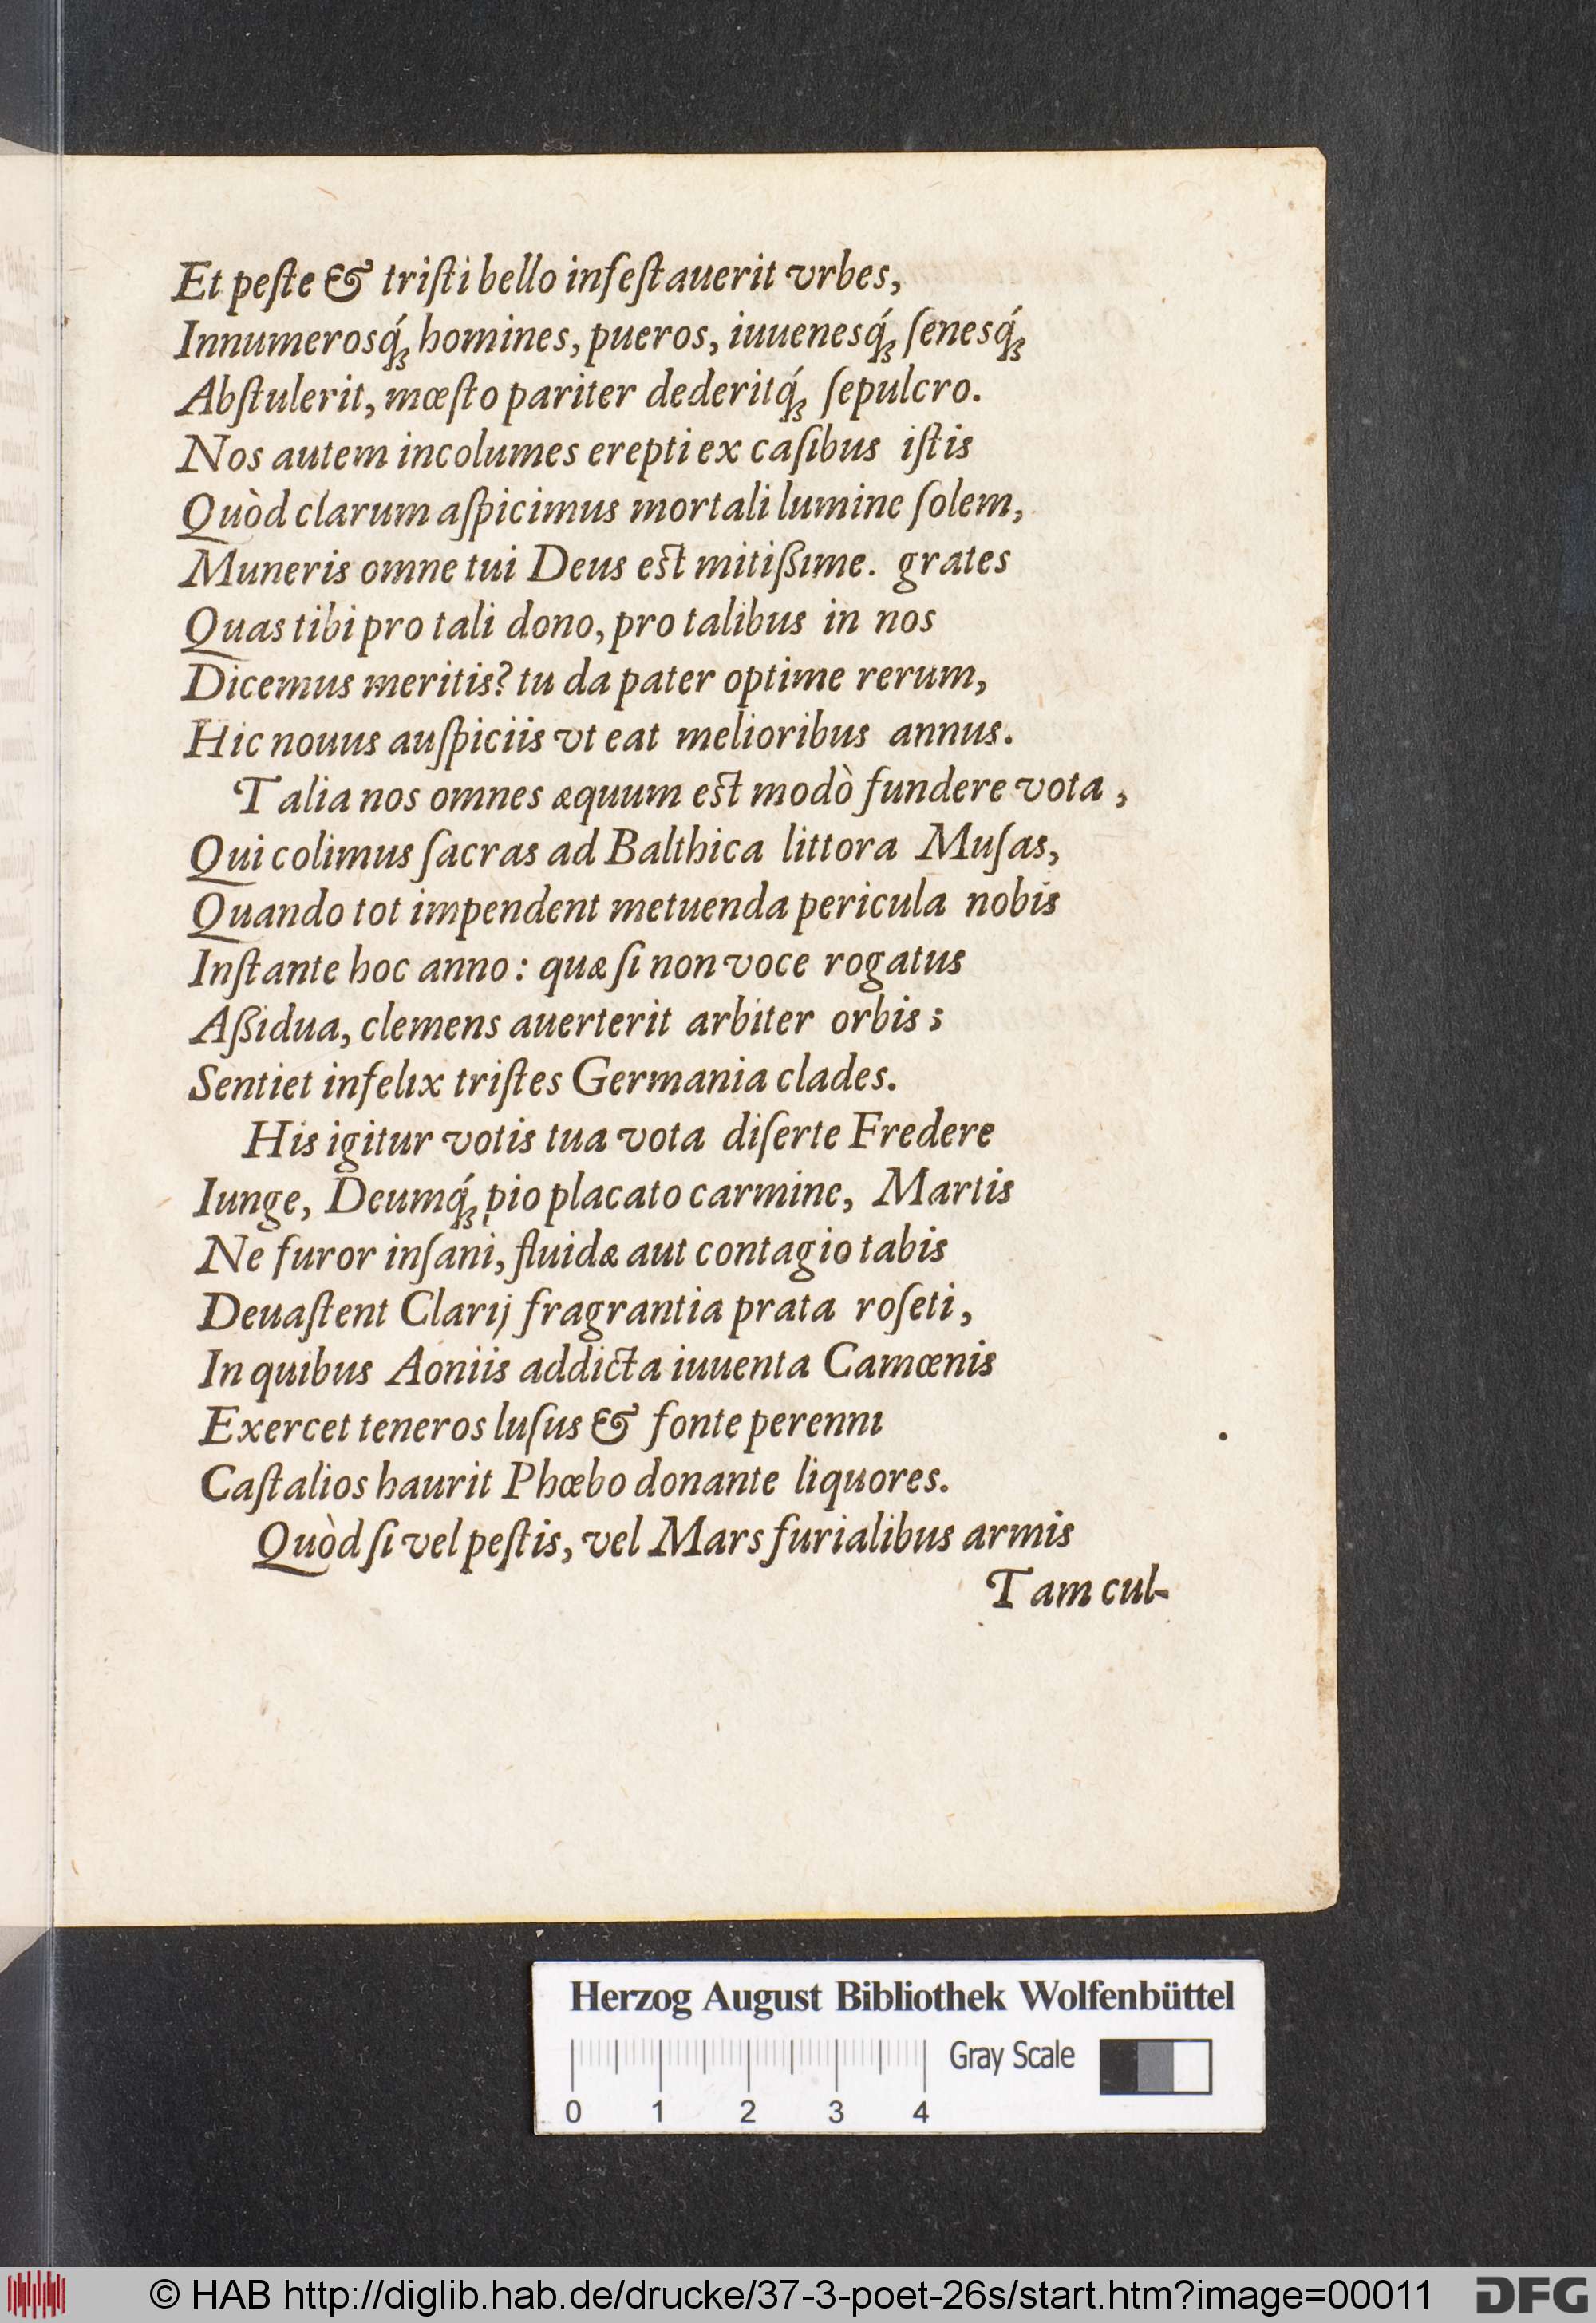 Et peſte & triſti bello infeſtauerit vrbes,
Innumerosq́; homines, pueros, iuuenesq́; ſenesq́;
Abſtulerit, mœſto pariter dederitq́; ſepulcro.
Nos autem incolumes erepti ex caſibus iſtis
Quòd clarum aſpicimus mortali lumine ſolem,
Muneris omne tui Deus eſt mitißime. grates
Quas tibi pro tali dono, pro talibus in nos
Dicemus meritis? tu da pater optime rerum,
Hic nouus auſpiciis vt eat melioribus annus.
Talia nos omnes æquum eſt modò fundere vota,
Qui colimus ſacras ad Balthica littora Muſas,
Quando tot impendent metuenda pericula nobis
Inſtante hoc anno: quæ ſi non voce rogatus
Aßidua, clemens auerterit arbiter orbis;
Sentiet infelix triſtes Germania clades.
His igitur votis tua vota diſerte Fredere
Iunge, Deumq́; pio placato carmine, Martis
Ne furor inſani, fluidæ aut contagio tabis
Deuaſtent Clarij fragrantia prata roſeti,
In quibus Aoniis addicta iuuenta Camœnis
Exercet teneros luſus & fonte perenni
Caſtalios haurit Phœbo donante liquores.
Quòd ſi vel peſtis, vel Mars furialibus armis
Tam cul-
Herzog August Bibliothek Wolfenbüttel
Gray Scale
0 1 2 3 4
© HAB http://diglib.hab.de/drucke/37-3-poet-26s/start.htm?image=00011
DFG